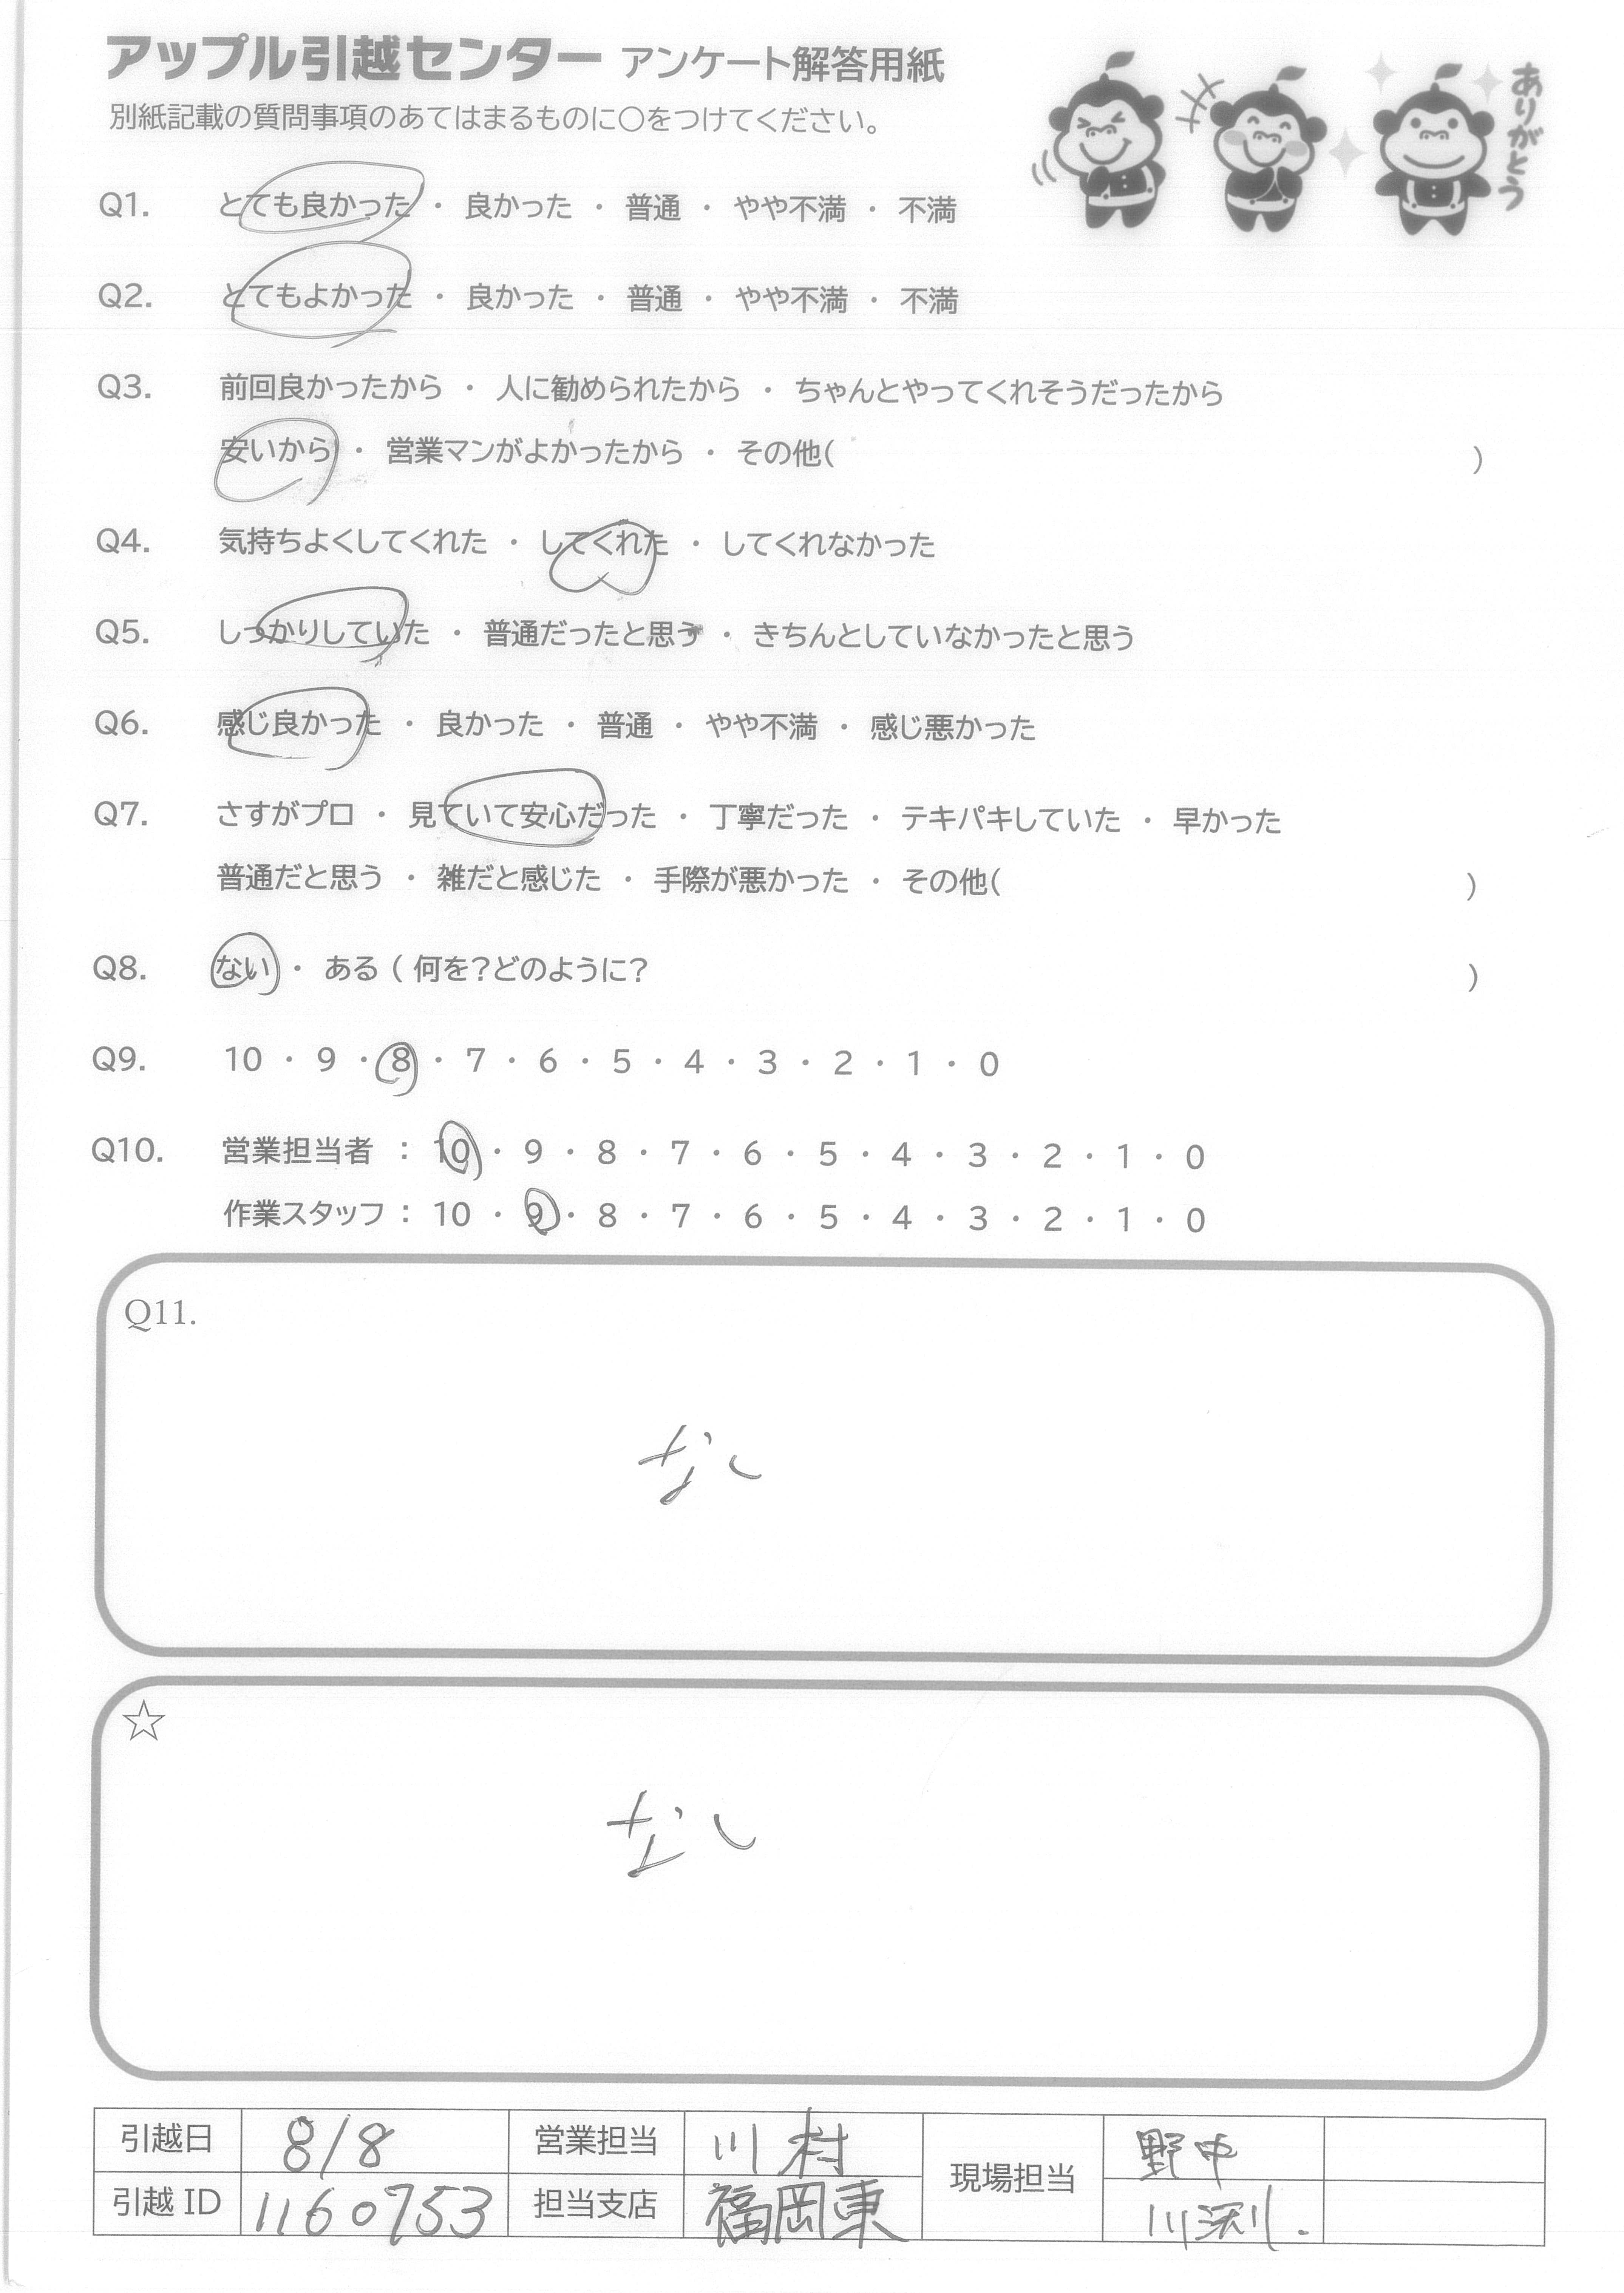 アップル引越センター アンケート解答用紙
別紙記載の質問事項のあてはまるものに○をつけてください。
ありがとう
Q1. とても良かった ・ 良かった ・ 普通 ・ やや不満 ・ 不満
Q2. とてもよかった ・ 良かった ・ 普通 ・ やや不満 ・ 不満
Q3. 前回良かったから ・ 人に勧められたから ・ ちゃんとやってくれそうだったから
安いから ・ 営業マンがよかったから ・ その他( )
Q4. 気持ちよくしてくれた ・ してくれた ・ してくれなかった
Q5. しっかりしていた ・ 普通だったと思う ・ きちんとしていなかったと思う
Q6. 感じ良かった ・ 良かった ・ 普通 ・ やや不満 ・ 感じ悪かった
Q7. さすがプロ ・ 見ていて安心だった ・ 丁寧だった ・ テキパキしていた ・ 早かった
普通だと思う ・ 雑だと感じた ・ 手際が悪かった ・ その他( )
Q8. ない ・ ある ( 何を?どのように? )
Q9. 10 ・ 9 ・ 8 ・ 7 ・ 6 ・ 5 ・ 4 ・ 3 ・ 2 ・ 1 ・ 0
Q10. 営業担当者 : 10 ・ 9 ・ 8 ・ 7 ・ 6 ・ 5 ・ 4 ・ 3 ・ 2 ・ 1 ・ 0
作業スタッフ : 10 ・ 9 ・ 8 ・ 7 ・ 6 ・ 5 ・ 4 ・ 3 ・ 2 ・ 1 ・ 0
Q11.
なし
☆
なし
引越日 8/8 営業担当 川村 現場担当 野中
引越 ID 1160753 担当支店 福岡東 川渕